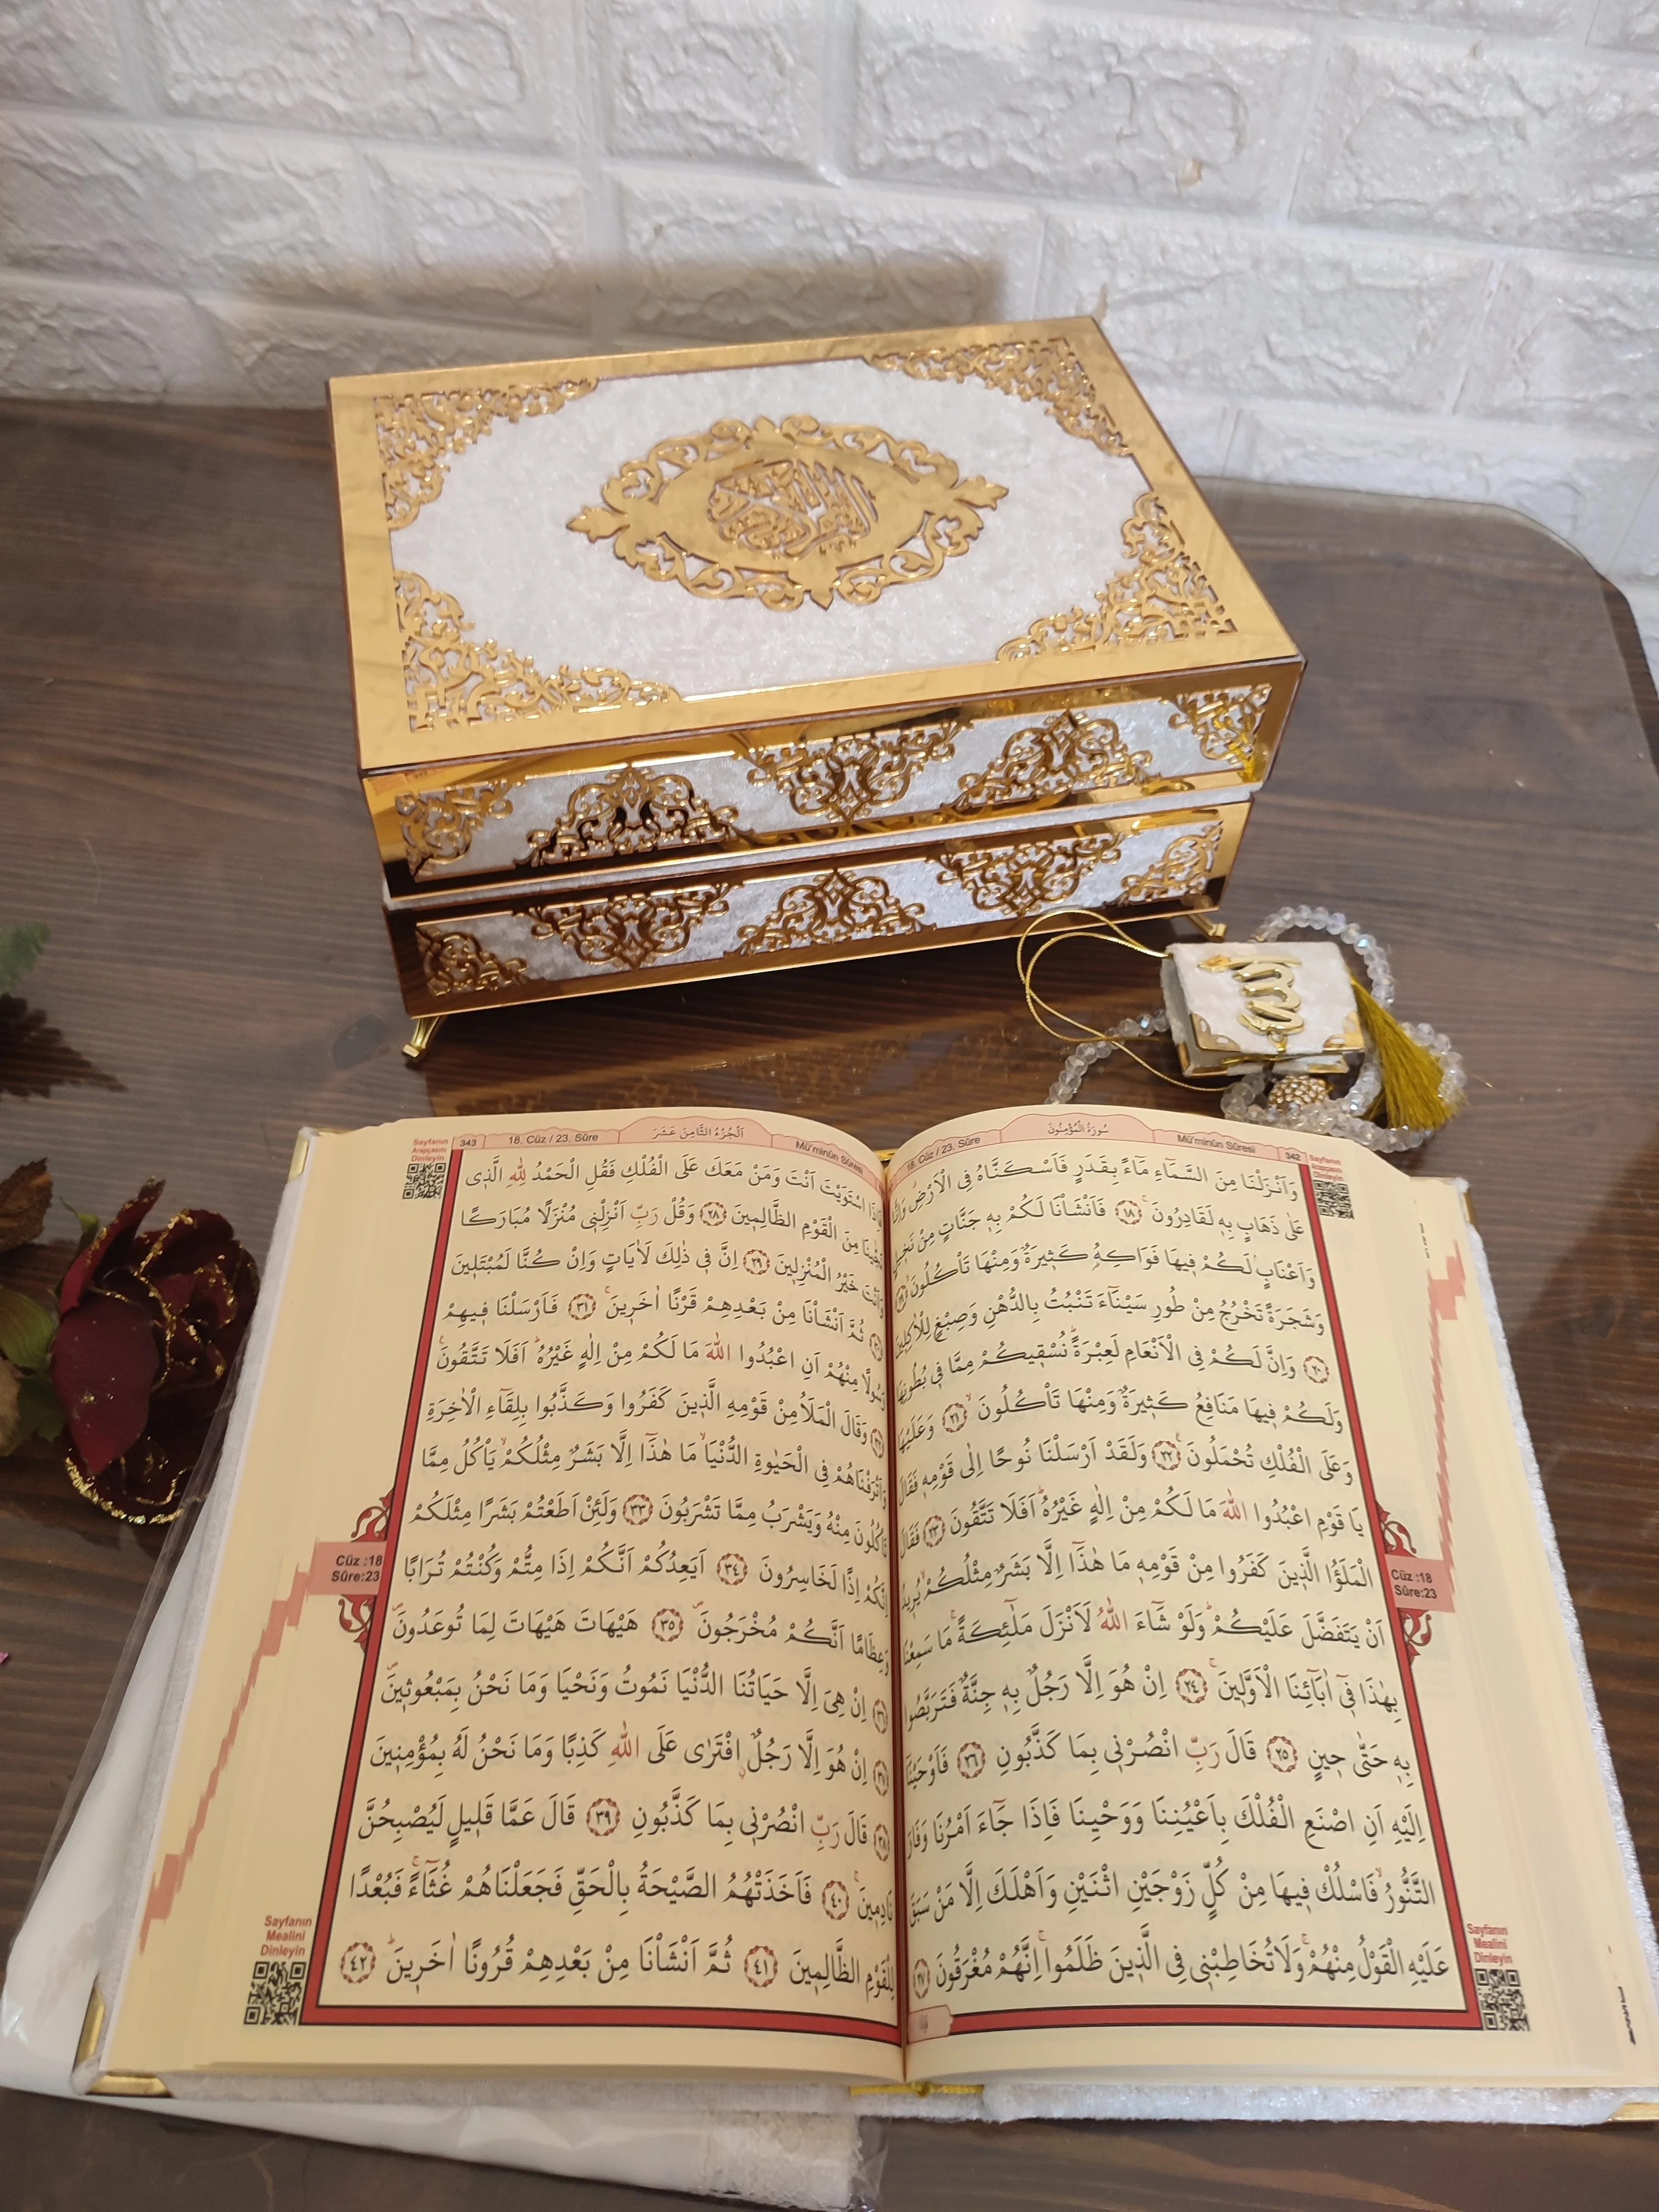 القرآن الكريم
342
Mü'minûn Sûresi
سُورَةُ الْمُؤْمِنُونَ
18. Cüz / 23. Sûre
Sayfanın
Arapçasını
Dinleyin
وَاَنْزَلْنَا مِنَ السَّمَٓاءِ مَٓاءً بِقَدَرٍ فَاَسْكَنَّاهُ فِي الْاَرْضِۗ وَاِنَّا
عَلٰى ذَهَابٍ بِه۪ لَقَادِرُونَۚ ﴿١٨﴾ فَاَنْشَأْنَا لَكُمْ بِه۪ جَنَّاتٍ مِنْ نَخ۪يلٍ
وَاَعْنَابٍۢ لَكُمْ ف۪يهَا فَوَاكِهُ كَث۪يرَةٌ وَمِنْهَا تَأْكُلُونَۙ ﴿١٩﴾
وَشَجَرَةً تَخْرُجُ مِنْ طُورِ سَيْنَٓاءَ تَنْبُتُ بِالدُّهْنِ وَصِبْغٍ لِلْاٰكِل۪ينَ
﴿٢٠﴾ وَاِنَّ لَكُمْ فِي الْاَنْعَامِ لَعِبْرَةًۜ نُسْق۪يكُمْ مِمَّا ف۪ي بُطُونِهَا
وَلَكُمْ ف۪يهَا مَنَافِعُ كَث۪يرَةٌ وَمِنْهَا تَأْكُلُونَۙ ﴿٢١﴾ وَعَلَيْهَا
وَعَلَى الْفُلْكِ تُحْمَلُونَ۟ ﴿٢٢﴾ وَلَقَدْ اَرْسَلْنَا نُوحًا اِلٰى قَوْمِه۪ فَقَالَ
يَا قَوْمِ اعْبُدُوا اللّٰهَ مَا لَكُمْ مِنْ اِلٰهٍ غَيْرُهُۜ اَفَلَا تَتَّقُونَ ﴿٢٣﴾ فَقَالَ
الْمَلَؤُا الَّذ۪ينَ كَفَرُوا مِنْ قَوْمِه۪ مَا هٰذَٓا اِلَّا بَشَرٌ مِثْلُكُمْۙ يُر۪يدُ
اَنْ يَتَفَضَّلَ عَلَيْكُمْۜ وَلَوْ شَٓاءَ اللّٰهُ لَاَنْزَلَ مَلٰٓئِكَةًۚ مَا سَمِعْنَا
بِهٰذَا ف۪ٓي اٰبَٓائِنَا الْاَوَّل۪ينَۚ ﴿٢٤﴾ اِنْ هُوَ اِلَّا رَجُلٌ بِه۪ جِنَّةٌ فَتَرَبَّصُوا
بِه۪ حَتّٰى ح۪ينٍ ﴿٢٥﴾ قَالَ رَبِّ انْصُرْن۪ي بِمَا كَذَّبُونِ ﴿٢٦﴾ فَاَوْحَيْنَٓا
اِلَيْهِ اَنِ اصْنَعِ الْفُلْكَ بِاَعْيُنِنَا وَوَحْيِنَا فَاِذَا جَٓاءَ اَمْرُنَا وَفَارَ
التَّنُّورُۙ فَاسْلُكْ ف۪يهَا مِنْ كُلٍّ زَوْجَيْنِ اثْنَيْنِ وَاَهْلَكَ اِلَّا مَنْ سَبَقَ
عَلَيْهِ الْقَوْلُ مِنْهُمْۚ وَلَا تُخَاطِبْن۪ي فِي الَّذ۪ينَ ظَلَمُواۚ اِنَّهُمْ مُغْرَقُونَ ﴿٢٧﴾
Cüz :18
Sûre:23
Sayfanın
Mealini
Dinleyin
Mü'minûn Sûresi
اَلْجُزْءُ الثَّامِنَ عَشَرَ
18. Cüz / 23. Sûre
343
Sayfanın
Arapçasını
Dinleyin
فَاِذَا اسْتَوَيْتَ اَنْتَ وَمَنْ مَعَكَ عَلَى الْفُلْكِ فَقُلِ الْحَمْدُ لِلّٰهِ الَّذ۪ي
نَجّٰينَا مِنَ الْقَوْمِ الظَّالِم۪ينَ ﴿٢٨﴾ وَقُلْ رَبِّ اَنْزِلْن۪ي مُنْزَلًا مُبَارَكًا
وَاَنْتَ خَيْرُ الْمُنْزِل۪ينَ ﴿٢٩﴾ اِنَّ ف۪ي ذٰلِكَ لَاٰيَاتٍ وَاِنْ كُنَّا لَمُبْتَل۪ينَ
﴿٣٠﴾ ثُمَّ اَنْشَأْنَا مِنْ بَعْدِهِمْ قَرْنًا اٰخَر۪ينَۚ ﴿٣١﴾ فَاَرْسَلْنَا ف۪يهِمْ
رَسُولًا مِنْهُمْ اَنِ اعْبُدُوا اللّٰهَ مَا لَكُمْ مِنْ اِلٰهٍ غَيْرُهُۜ اَفَلَا تَتَّقُونَ۟
﴿٣٢﴾ وَقَالَ الْمَلَاُ مِنْ قَوْمِهِ الَّذ۪ينَ كَفَرُوا وَكَذَّبُوا بِلِقَٓاءِ الْاٰخِرَةِ
وَاَتْرَفْنَاهُمْ فِي الْحَيٰوةِ الدُّنْيَاۙ مَا هٰذَٓا اِلَّا بَشَرٌ مِثْلُكُمْۙ يَأْكُلُ مِمَّا
تَأْكُلُونَ مِنْهُ وَيَشْرَبُ مِمَّا تَشْرَبُونَ ﴿٣٣﴾ وَلَئِنْ اَطَعْتُمْ بَشَرًا مِثْلَكُمْ
اِنَّكُمْ اِذًا لَخَاسِرُونَ ﴿٣٤﴾ اَيَعِدُكُمْ اَنَّكُمْ اِذَا مِتُّمْ وَكُنْتُمْ تُرَابًا
وَعِظَامًا اَنَّكُمْ مُخْرَجُونَۖ ﴿٣٥﴾ هَيْهَاتَ هَيْهَاتَ لِمَا تُوعَدُونَۖ
﴿٣٦﴾ اِنْ هِيَ اِلَّا حَيَاتُنَا الدُّنْيَا نَمُوتُ وَنَحْيَا وَمَا نَحْنُ بِمَبْعُوث۪ينَۖ
﴿٣٧﴾ اِنْ هُوَ اِلَّا رَجُلٌۨ افْتَرٰى عَلَى اللّٰهِ كَذِبًا وَمَا نَحْنُ لَهُ بِمُؤْمِن۪ينَ
﴿٣٨﴾ قَالَ رَبِّ انْصُرْن۪ي بِمَا كَذَّبُونِ ﴿٣٩﴾ قَالَ عَمَّا قَل۪يلٍ لَيُصْبِحُنَّ
نَادِم۪ينَۚ ﴿٤٠﴾ فَاَخَذَتْهُمُ الصَّيْحَةُ بِالْحَقِّ فَجَعَلْنَاهُمْ غُثَٓاءًۚ فَبُعْدًا
لِلْقَوْمِ الظَّالِم۪ينَ ﴿٤١﴾ ثُمَّ اَنْشَأْنَا مِنْ بَعْدِهِمْ قُرُونًا اٰخَر۪ينَۜ ﴿٤٢﴾
Cüz :18
Sûre:23
Sayfanın
Mealini
Dinleyin